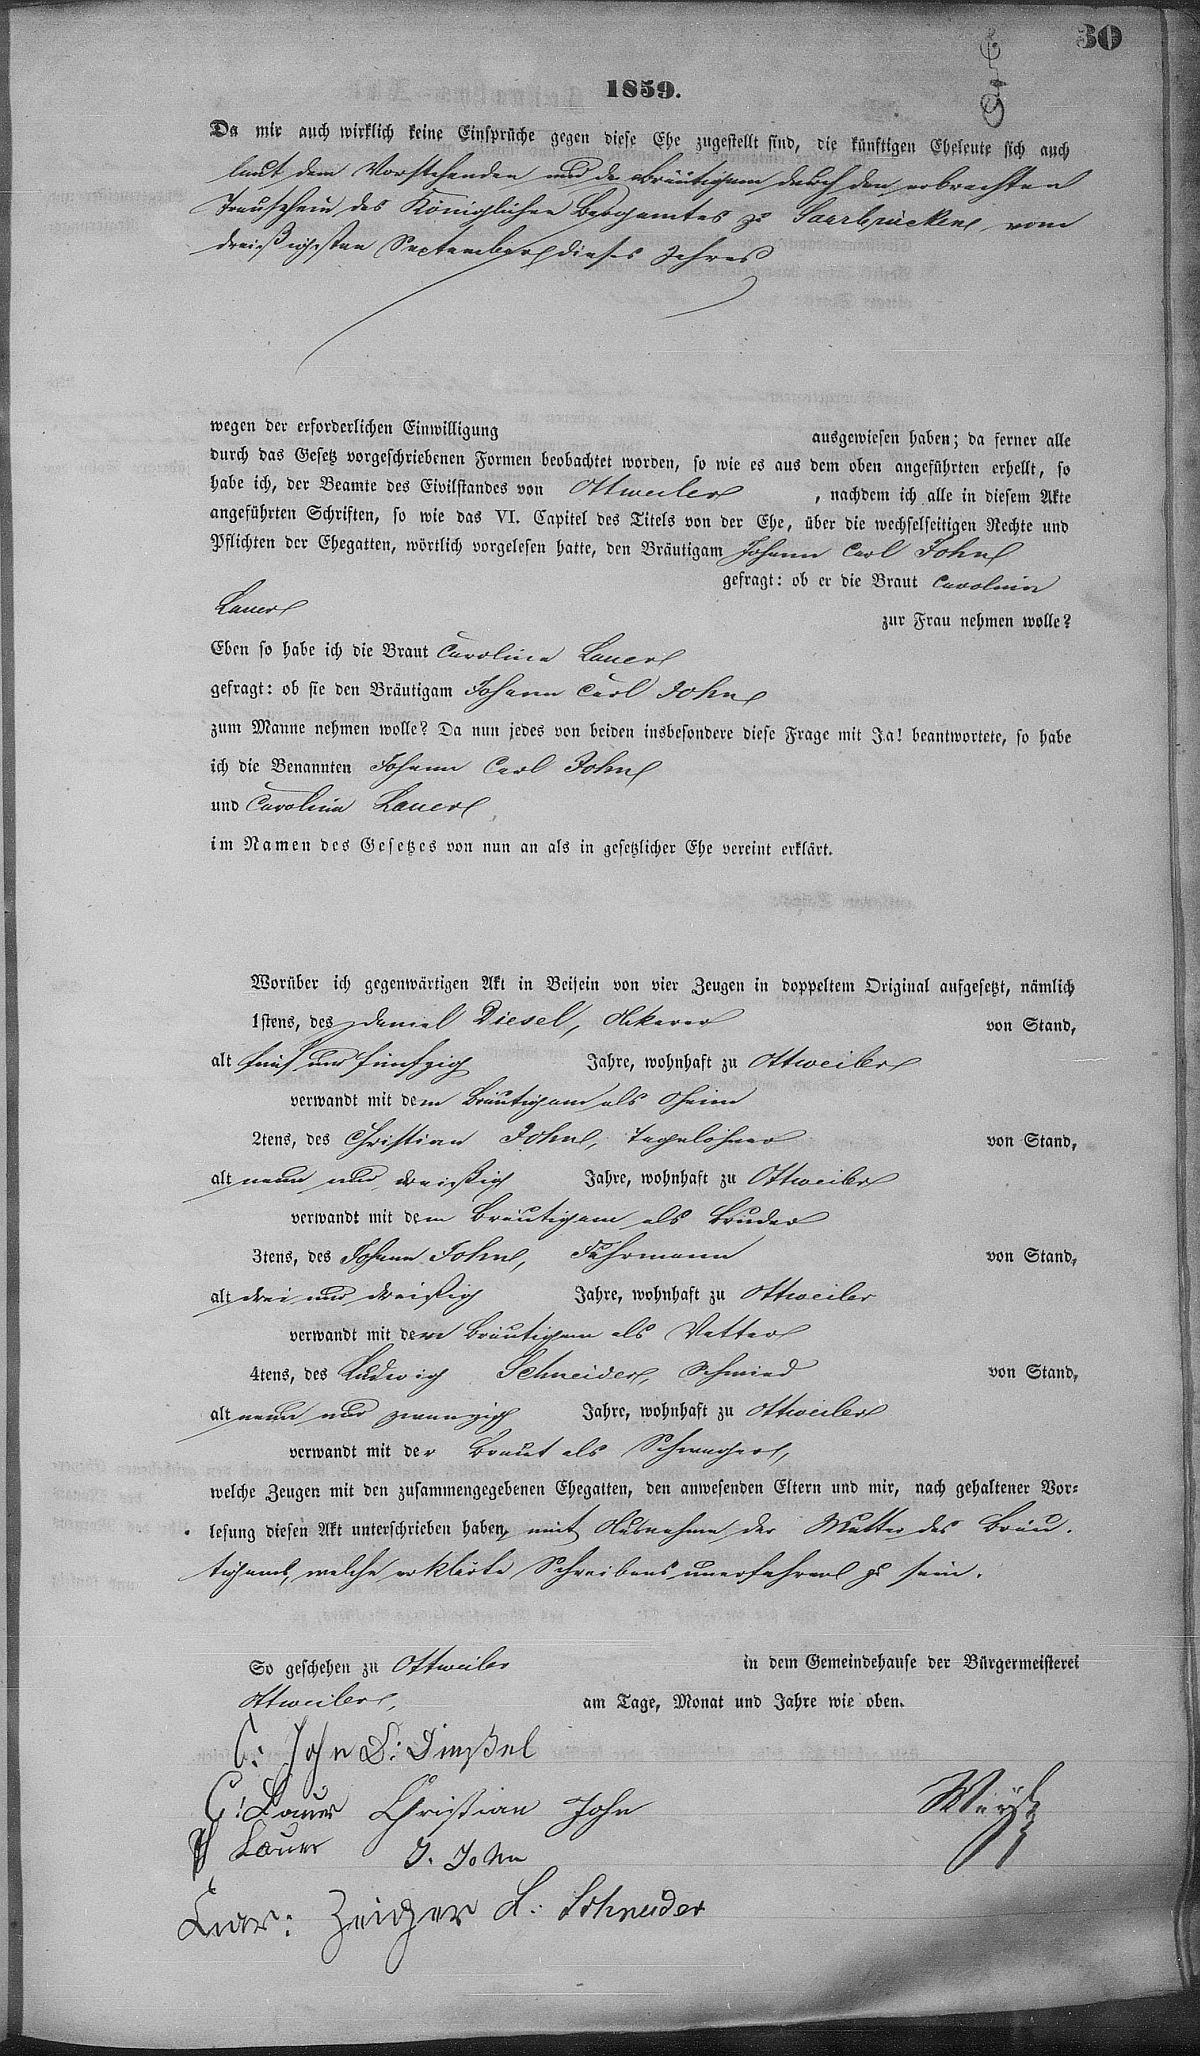 30
1859.
Da mir auch wirklich keine Einsprüche gegen diese Ehe zugestellt sind, die künftigen Eheleute sich auch
laut dem Vorstehenden und der Bräutigam durch den erbrachten
Trauschein des Königlichen Bergamtes zu Saarbrücken vom
dreißigsten September dieses Jahres
wegen der erforderlichen Einwilligung ausgewiesen haben; da ferner alle
durch das Gesetz vorgeschriebenen Formen beobachtet worden, so wie es aus dem oben angeführten erhellt, so
habe ich, der Beamte des Civilstandes von Ottweiler, nachdem ich alle in diesem Akte
angeführten Schriften, so wie das VI. Capitel des Titels von der Ehe, über die wechselseitigen Rechte und
Pflichten der Ehegatten, wörtlich vorgelesen hatte, den Bräutigam Johann Carl John
gefragt: ob er die Braut Carolina
Lauer
zur Frau nehmen wolle?
Eben so habe ich die Braut Carolina Lauer
gefragt: ob sie den Bräutigam Johann Carl John
zum Manne nehmen wolle? Da nun jedes von beiden insbesondere diese Frage mit Ja! beantwortete, so habe
ich die Benannten Johann Carl John
und Carolina Lauer
im Namen des Gesetzes von nun an als in gesetzlicher Ehe vereint erklärt.
Worüber ich gegenwärtigen Akt in Beisein von vier Zeugen in doppeltem Original aufgesetzt, nämlich
1stens, des Daniel Diesel, Ackerer von Stand,
alt fünf und fünfzig Jahre, wohnhaft zu Ottweiler
verwandt mit dem Bräutigam als Oheim
2tens, des Christian John, Tagelöhner von Stand,
alt neun und dreißig Jahre, wohnhaft zu Ottweiler
verwandt mit dem Bräutigam als Bruder
3tens, des Johann John, Fuhrmann von Stand,
alt drei und dreißig Jahre, wohnhaft zu Ottweiler
verwandt mit dem Bräutigam als Vetter
4tens, des Ludwig Schneider, Schmied von Stand,
alt neun und zwanzig Jahre, wohnhaft zu Ottweiler
verwandt mit der Braut als Schwager,
welche Zeugen mit den zusammengegebenen Ehegatten, den anwesenden Eltern und mir, nach gehaltener Vor-
lesung diesen Akt unterschrieben haben, mit Ausnahme der Mutter des Bräu-
tigams, welche erklärte Schreibens unerfahren zu sein.
So geschehen zu Ottweiler in dem Gemeindehause der Bürgermeisterei
Ottweiler, am Tage, Monat und Jahre wie oben.
C: John D: Dießel
C: Lauer Christian John
Lauer J. John
Car: Zeiger L: Schneider